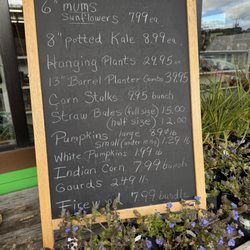 6" mums
Sunflowers 7.99ea
8" potted Kale 8.99ea
Hanging Plants 24.95ea
13" Barrel Planter Combo 39.95
Corn Stalks 9.95 bunch
Straw Bales (full size) 15.00
(half size) 12.00
Pumpkins large 89¢ lb
small (under 10 lb) 1.29 lb
White Pumpkins 1.49 lb
Indian Corn 7.99 bunch
Gourds 2.49 lb
Firewood 7.99 bundle